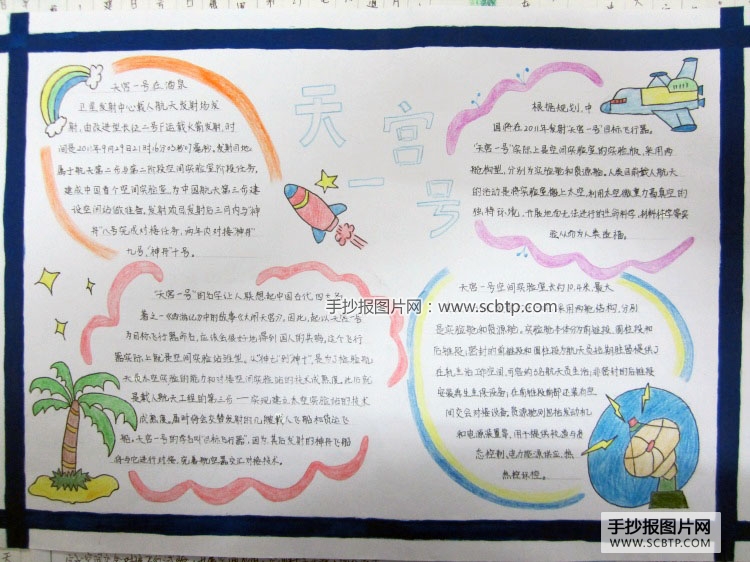 天宫一号在酒泉
卫星发射中心载人航天发射场发
射,由改进型长征二号F运载火箭发射,时
间是2011年9月29日21时16分03秒07毫秒。发射目地
属于航天第二步与第二阶段空间实验室阶段任务,
建成中国首个空间实验室,为中国航天第三步建
设空间站做准备,发射项目发射后三月内与"神
舟"八号完成对接任务,两年内对接"神舟"
九号,"神舟"十号。
天宫
一号
根据规划,中
国将在2011年发射"天宫一号"目标飞行器。
"天宫一号"实际上是空间实验室的实验版,采用两
舱构型,分别为实验舱和资源舱。人类目前载人航天
的活动是将实验室搬上太空,利用太空微重力高真空的
独特环境,开展地面无法进行的生命科学、材料科学等实
验从而为人类造福。
"天宫一号"的名字让人联想起中国古代四大名
著之一《西游记》中的故事《大闹天宫》。因此,起以天宫一号
为目标飞行器命名,应该会很好地得到国人的共鸣,这个飞行
器实际上就是空间实验站雏型。从"神七"到"神十",是为了检验航
天员太空实验的能力和对接空间实验站的技术成熟度,此后就
是载人航天工程的第三步——实现建立太空实验站的技术
成熟度。届时将会交替发射的几艘载人飞船和货运飞
船,天宫一号的命名叫"目标飞行器",因为其后发射的神舟飞船
将与它进行对接,完善航空器交汇对接技术。
天宫一号空间实验室长约10.4米,最大
采用两舱结构,分别
是实验舱和资源舱。实验舱本体分前锥段、圆柱段和
后锥段,密封的前锥段和圆柱段为航天员短期驻留提供了
在轨生活、工作空间,可保障3名航天员生活;非密封的后锥段
安装再生生保设备;在前锥段前部还装有空
间交会对接设备,资源舱则包括发动机
和电源装置等,用于提供轨道与姿
态控制、电力能源供应、热
热控环控。
手抄报图片网:www.scbtp.com
手抄报图片网
WWW.SCBTP.COM